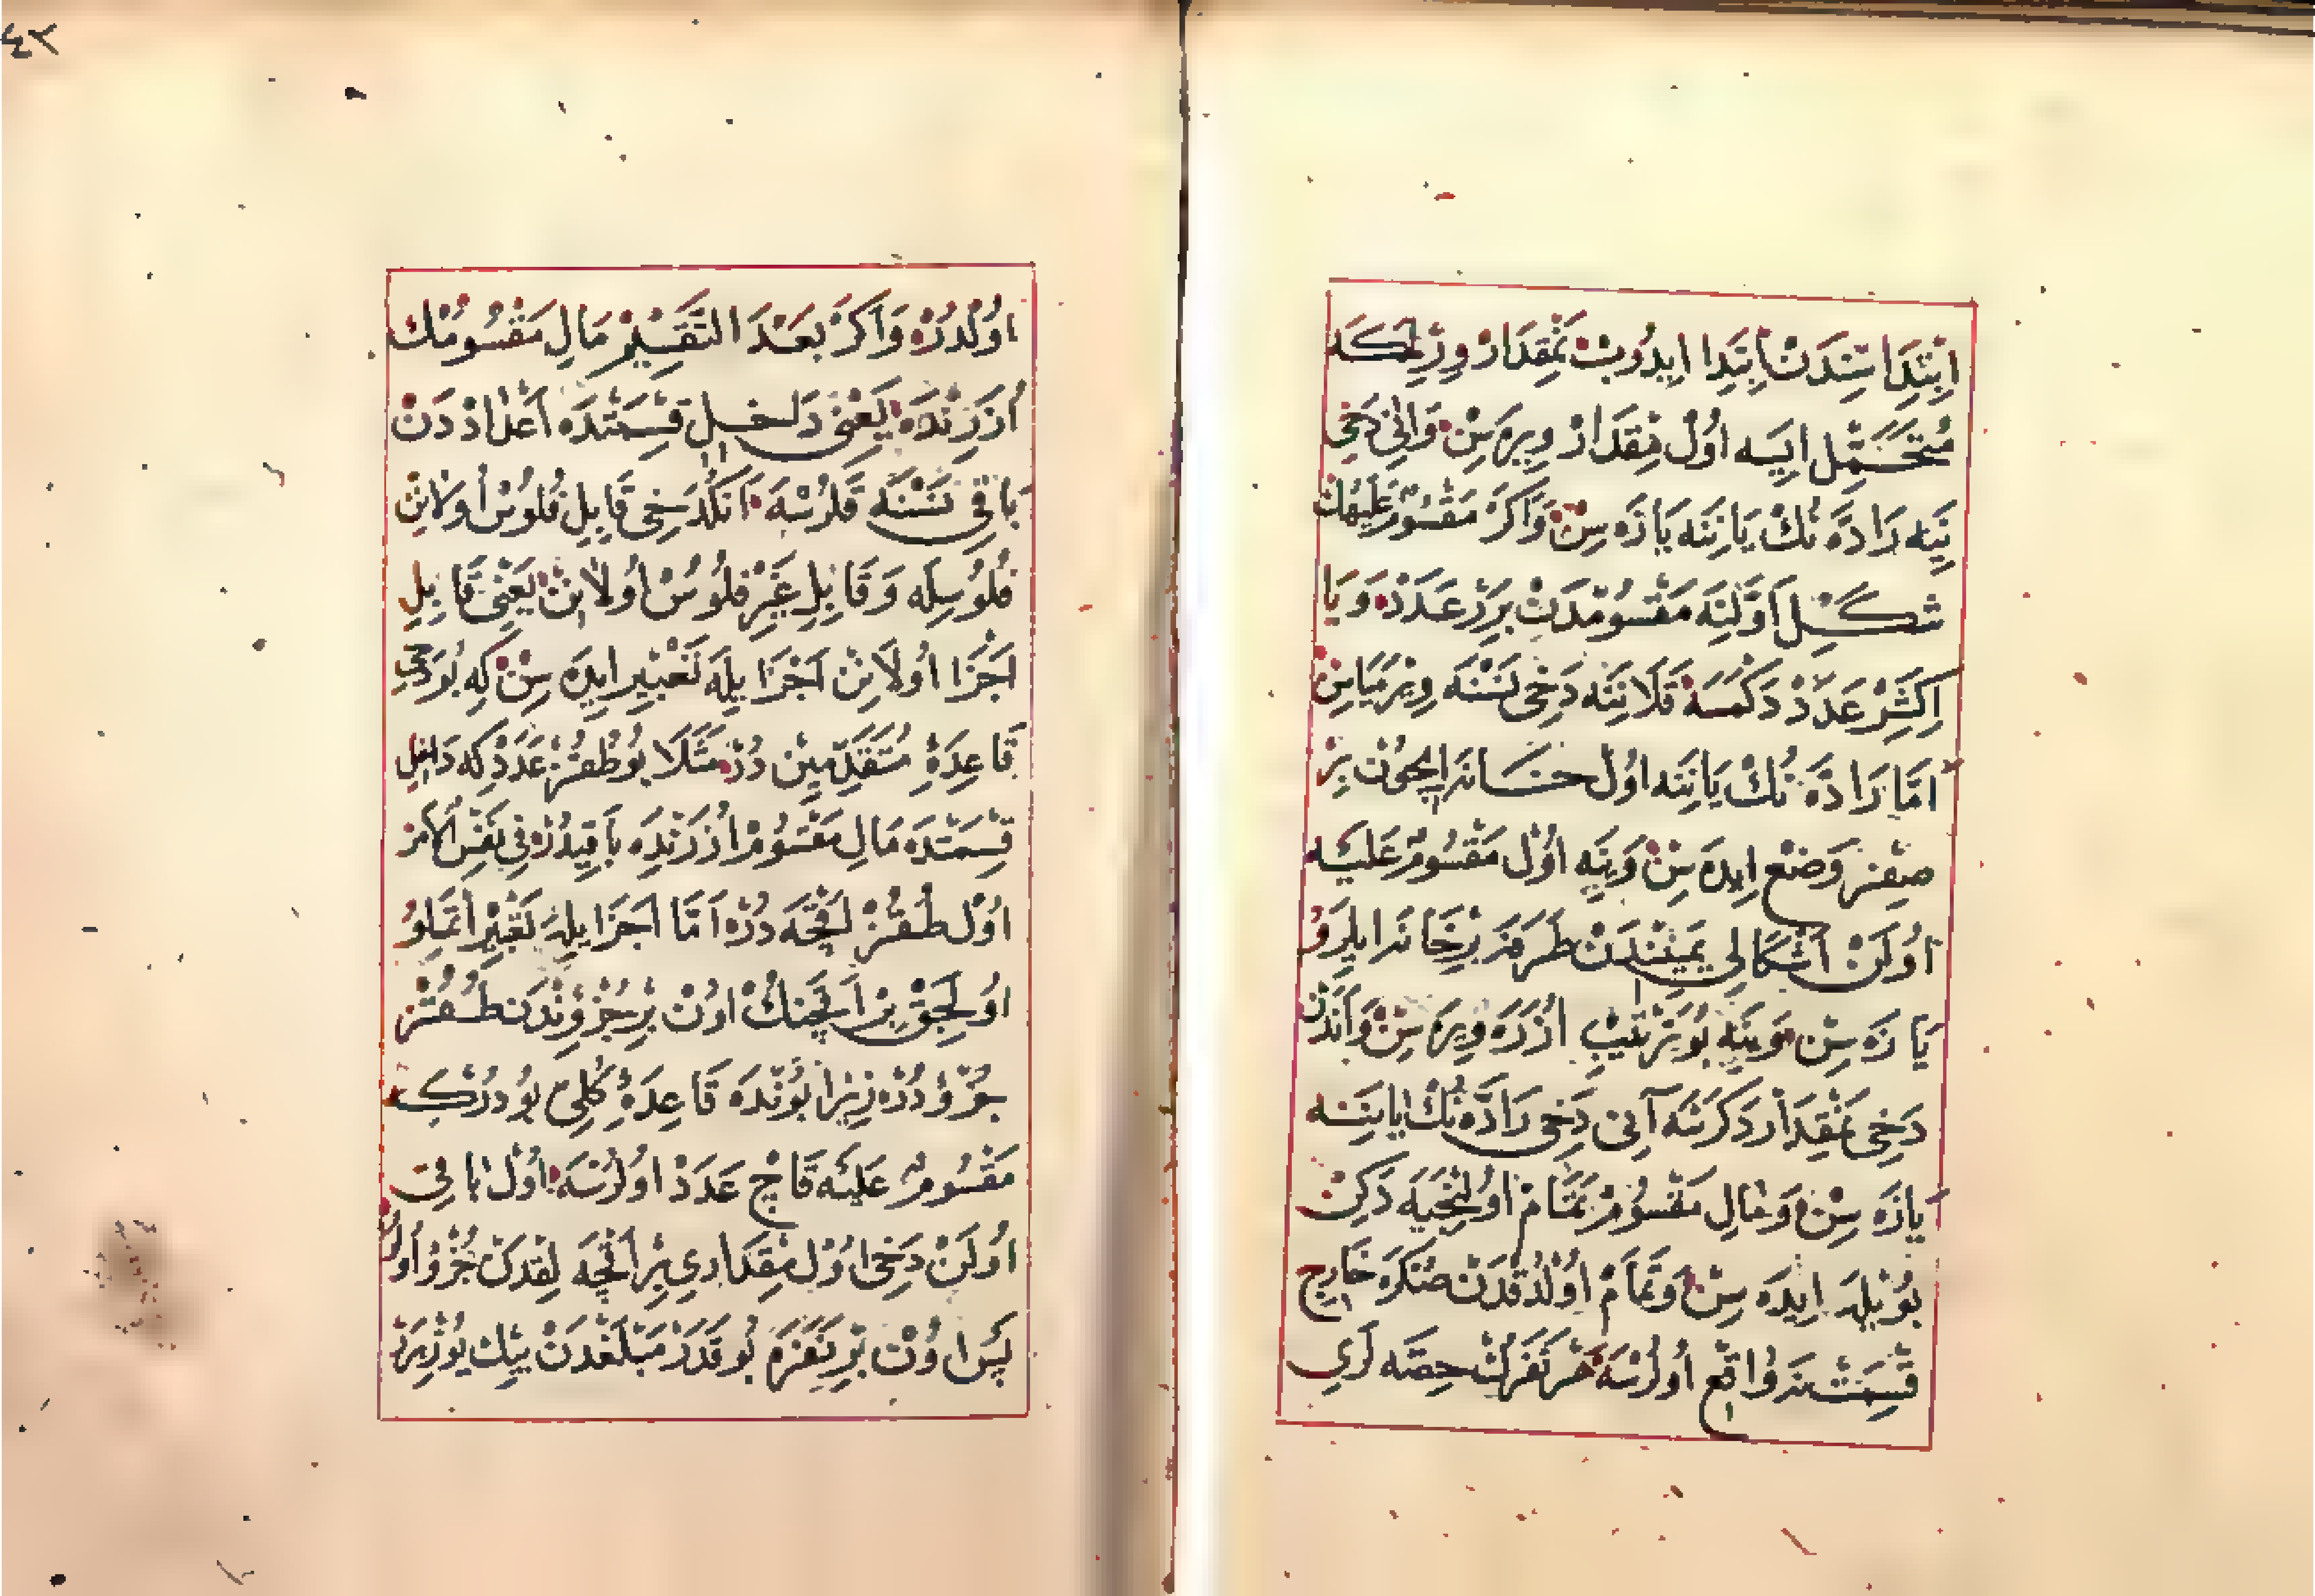 اِبْتِدَاسِنْدَنْ اِبْتِدَا ايدُوبْ نَمِقْدَارْ وِيرْمَكَه
مُتَحَمِّلْ ايسَه اُولْ مِقْدَارْ وِيرَه سِنْ وَانِى دَخِى
يَنِه رَادَّه نُكْ يَانِنَه يَازَه سِنْ وَاَكَرْ مَقْسُومٌ عَلَيْهِكْ
شَكْلِ اَوَّلِنَه مَقْسُومْدَنْ بِرَرْ عَدَدْ وَيَا
اَكْثَرْ عَدَدْ دَكْمَسَه قَلَانِنَه دَخِى نَسْنَه وِيرْمَيَاسِنْ
اَمَّا رَادَّه نُكْ يَانِنَه اُولْ خَانَه اِيچُونْ بِرْ
صِفِرْ وَضْع ايدَه سِنْ وَيَنِه اُولْ مَقْسُومٌ عَلَيْه
اُولَنْ اَشْكَالِى يَمِينِنْدَنْ طَرَفَه بِرْخَانَه ايلَرُو
يَازَه سِنْ وَيَنِه بُو تَرْتِيبْ اُزَرَه وِيرَه سِنْ وَاَنْدَنْ
دَخِى نَمِقْدَارْ دَكَرْسَه آنِى دَخِى رَادَّه نُكْ يَانِنَه
يَازَه سِنْ وَمَالِ مَقْسُومْ تَمَامْ اُولِنْجَيَه دَكِنْ
بُويْلَه ايدَه سِنْ وَتَمَامْ اُولْدُقْدَنْ صُكْرَه خَارِجِ
قِسْمَتْ نَه وَاقِع اُولُرْسَه هَرْ نَفَرِكْ حِصَّه لَرِى
٤٢
اُولْدُرْ وَاَكَرْ بَعْدَ التَّقْسِيمْ مَالِ مَقْسُومُكْ
اُزَرِنْدَه يَعْنِى دَاخِلِ قِسْمَتْدَه اَعْدَادْدَنْ
بَاقِى نَسْنَه قَلُرْسَه اَنِكْدَخِى قَابِلِ فُلُوسْ اُولَانِنْ
فُلُوسِلَه وَقَابِلِ غَيْرِ فُلُوسْ اُولَانِنْ يَعْنِى قَابِلِ
اَجْزَا اُولَانِنْ اَجْزَا يِلَه تَعْبِيرْ ايدَه سِنْ كِه بُو دَخِى
قَاعِدَهِٔ مُتَقَدِّمِينْ دُرْ مَثَلَا بُو طُقُزْ عَدَدْ كِه دَاخِلِ
قِسْمَتْدَه مَالِ مَقْسُومْ اُزَرِنْدَه بَاقِيدُرْ فِى نَفْسِ الْاَمْرْ
اُولْ طُقُزْ اَقْچَه دُرْ اَمَّا اَجْزَا يِلَه تَعْبِيرْ اِتْمَلُو
اُولِجَقْ بِرْ اَقْچَنِكْ اُونْ بِرْ جُزْؤِنْدَنْ طُقُزْ
جُزْؤُ دُرْ زِيرَا بُونْدَه قَاعِدَهِٔ كُلِّى بُودُرْكِه
مَقْسُومٌ عَلَيْه قَاچ عَدَدْ اُولُرْسَه اُولْ بَاقِى
اُولَنْ دَخِى اُولْ مِقْدَارِى بِرْ اَقْچَه لِقْدَنْ جُزْؤُ اُولُرْ
پَسْ اُونْ بِرْ نَفَرَه بُو قَدَرْ مَبْلَغْدَنْ بِيكْ يُوزْ بِرَرْ